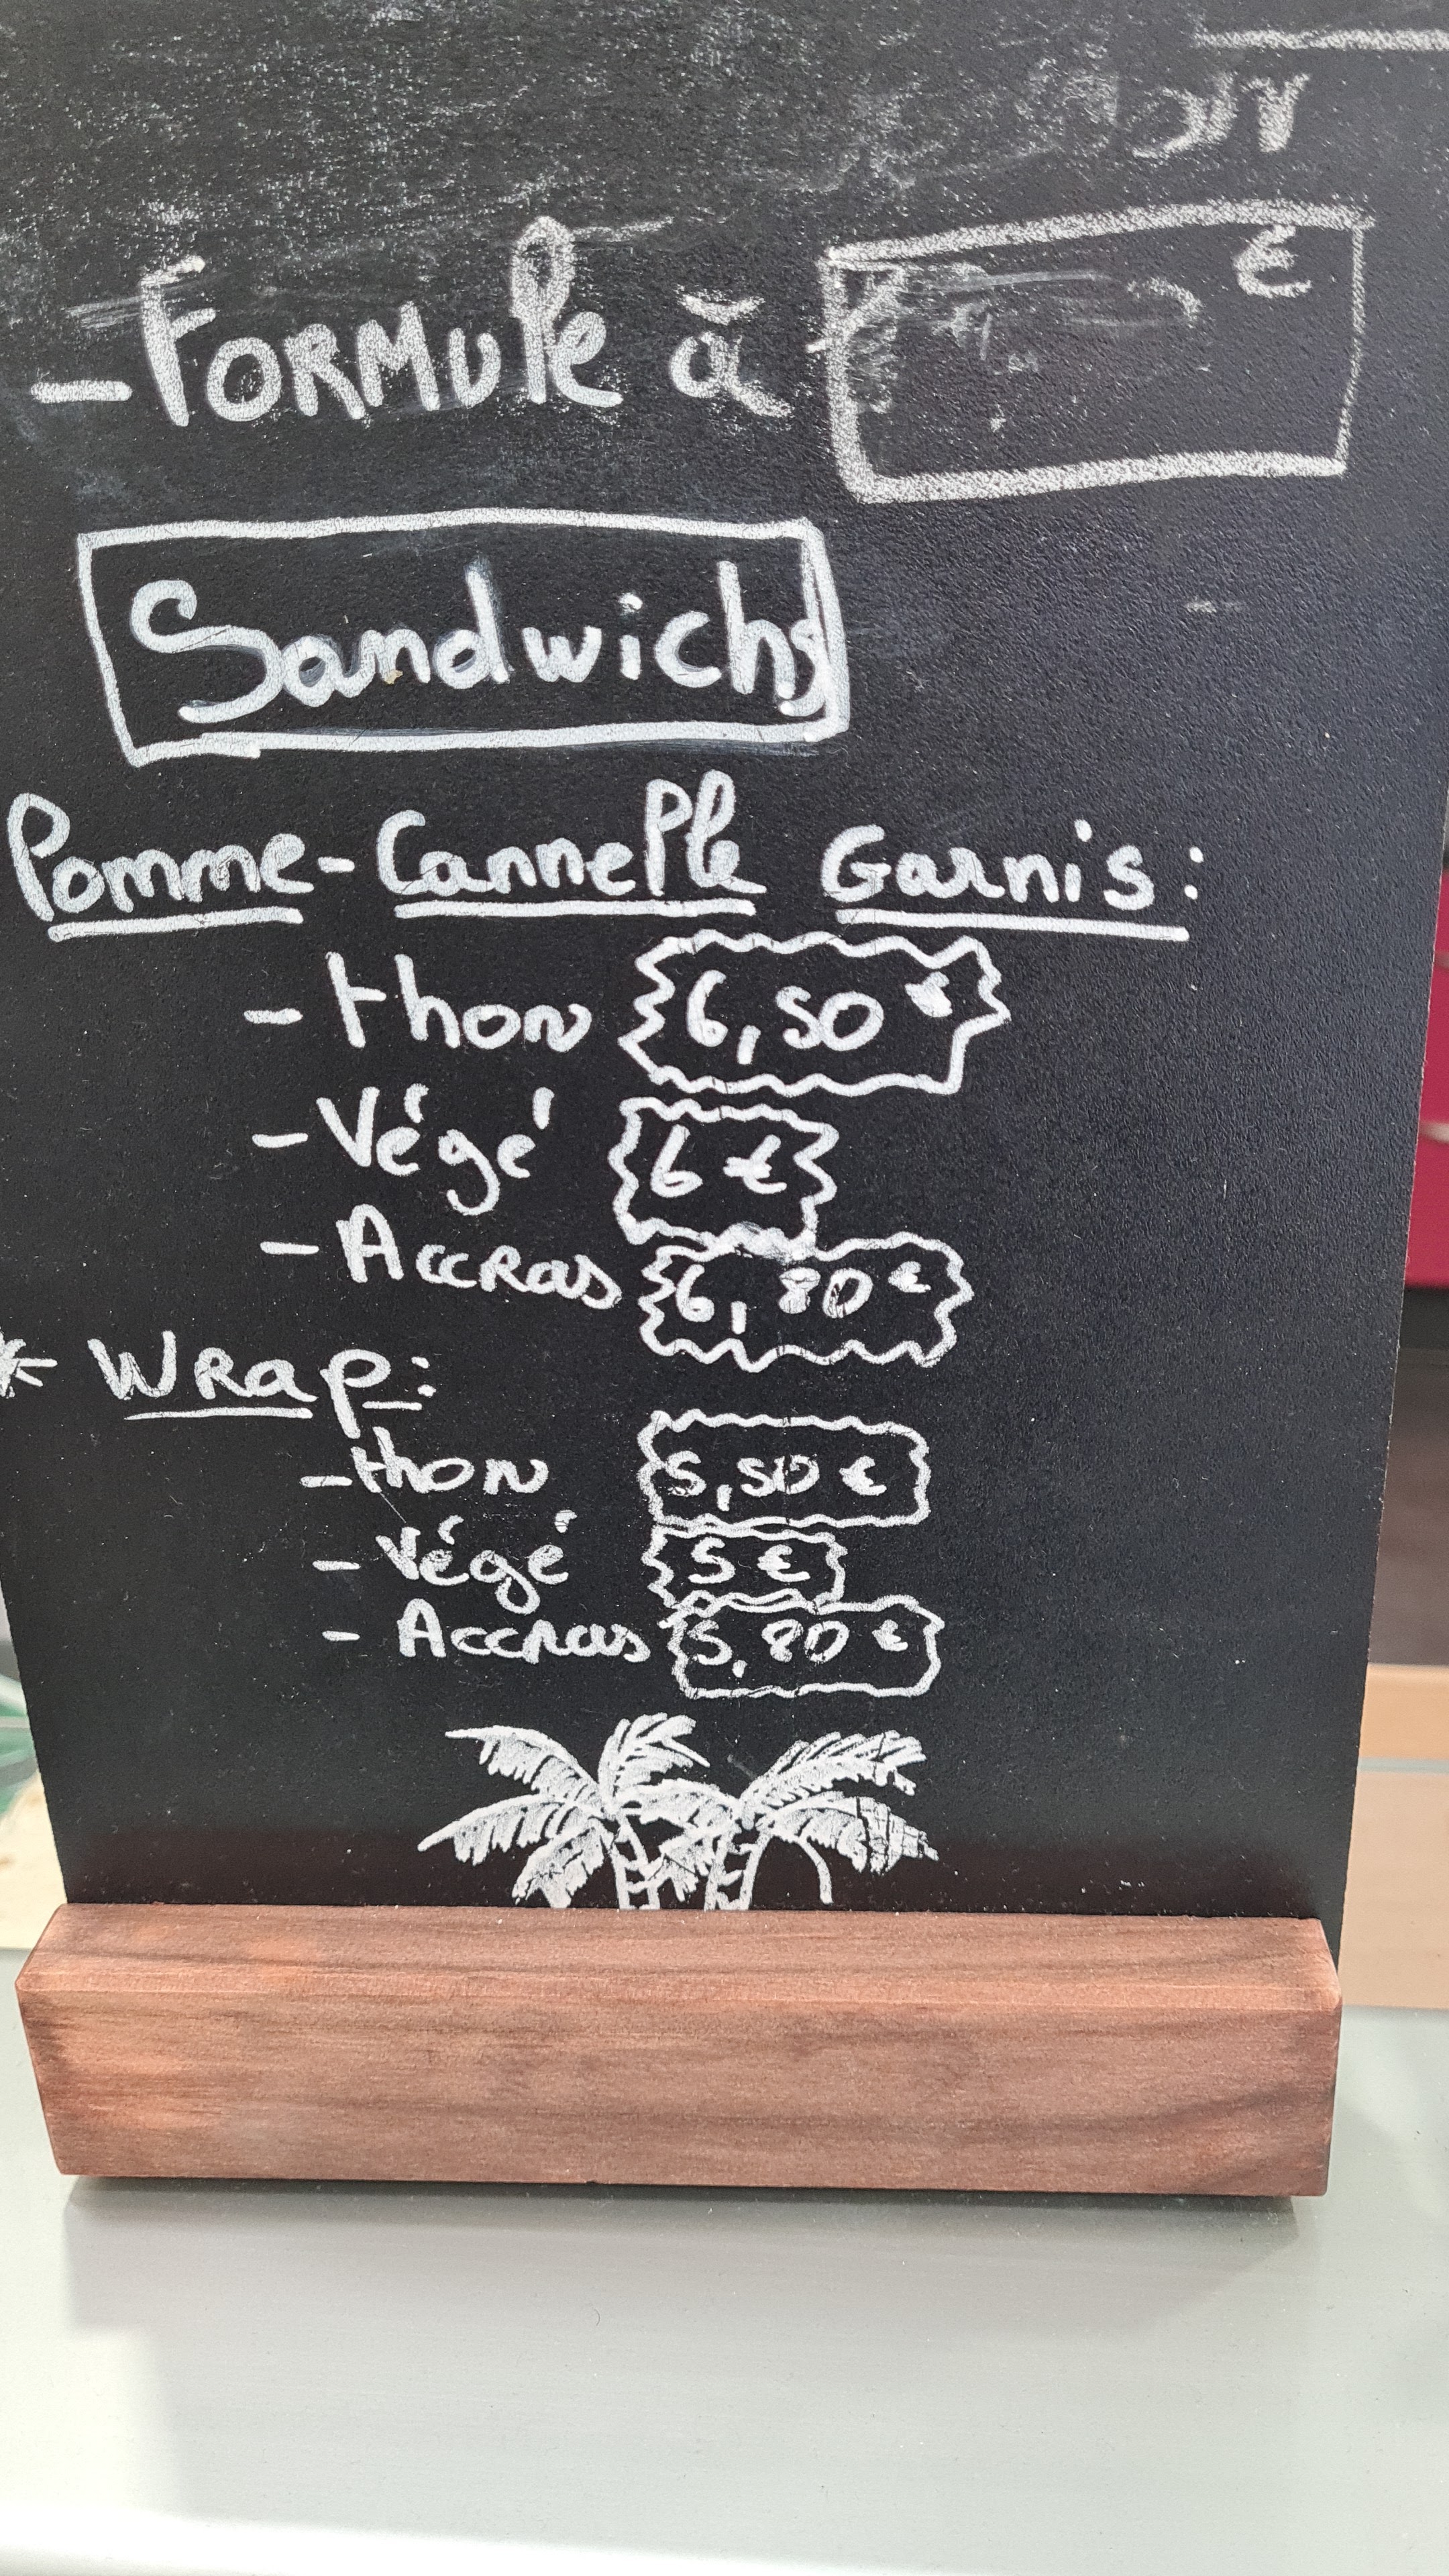 - Formule à €
Sandwichs
Pomme-Cannelle Garnis:
- thon 6,50 €
- Végé 6 €
- Accras 6,80 €
* Wrap:
- thon 5,50 €
- Végé 5 €
- Accras 5,80 €